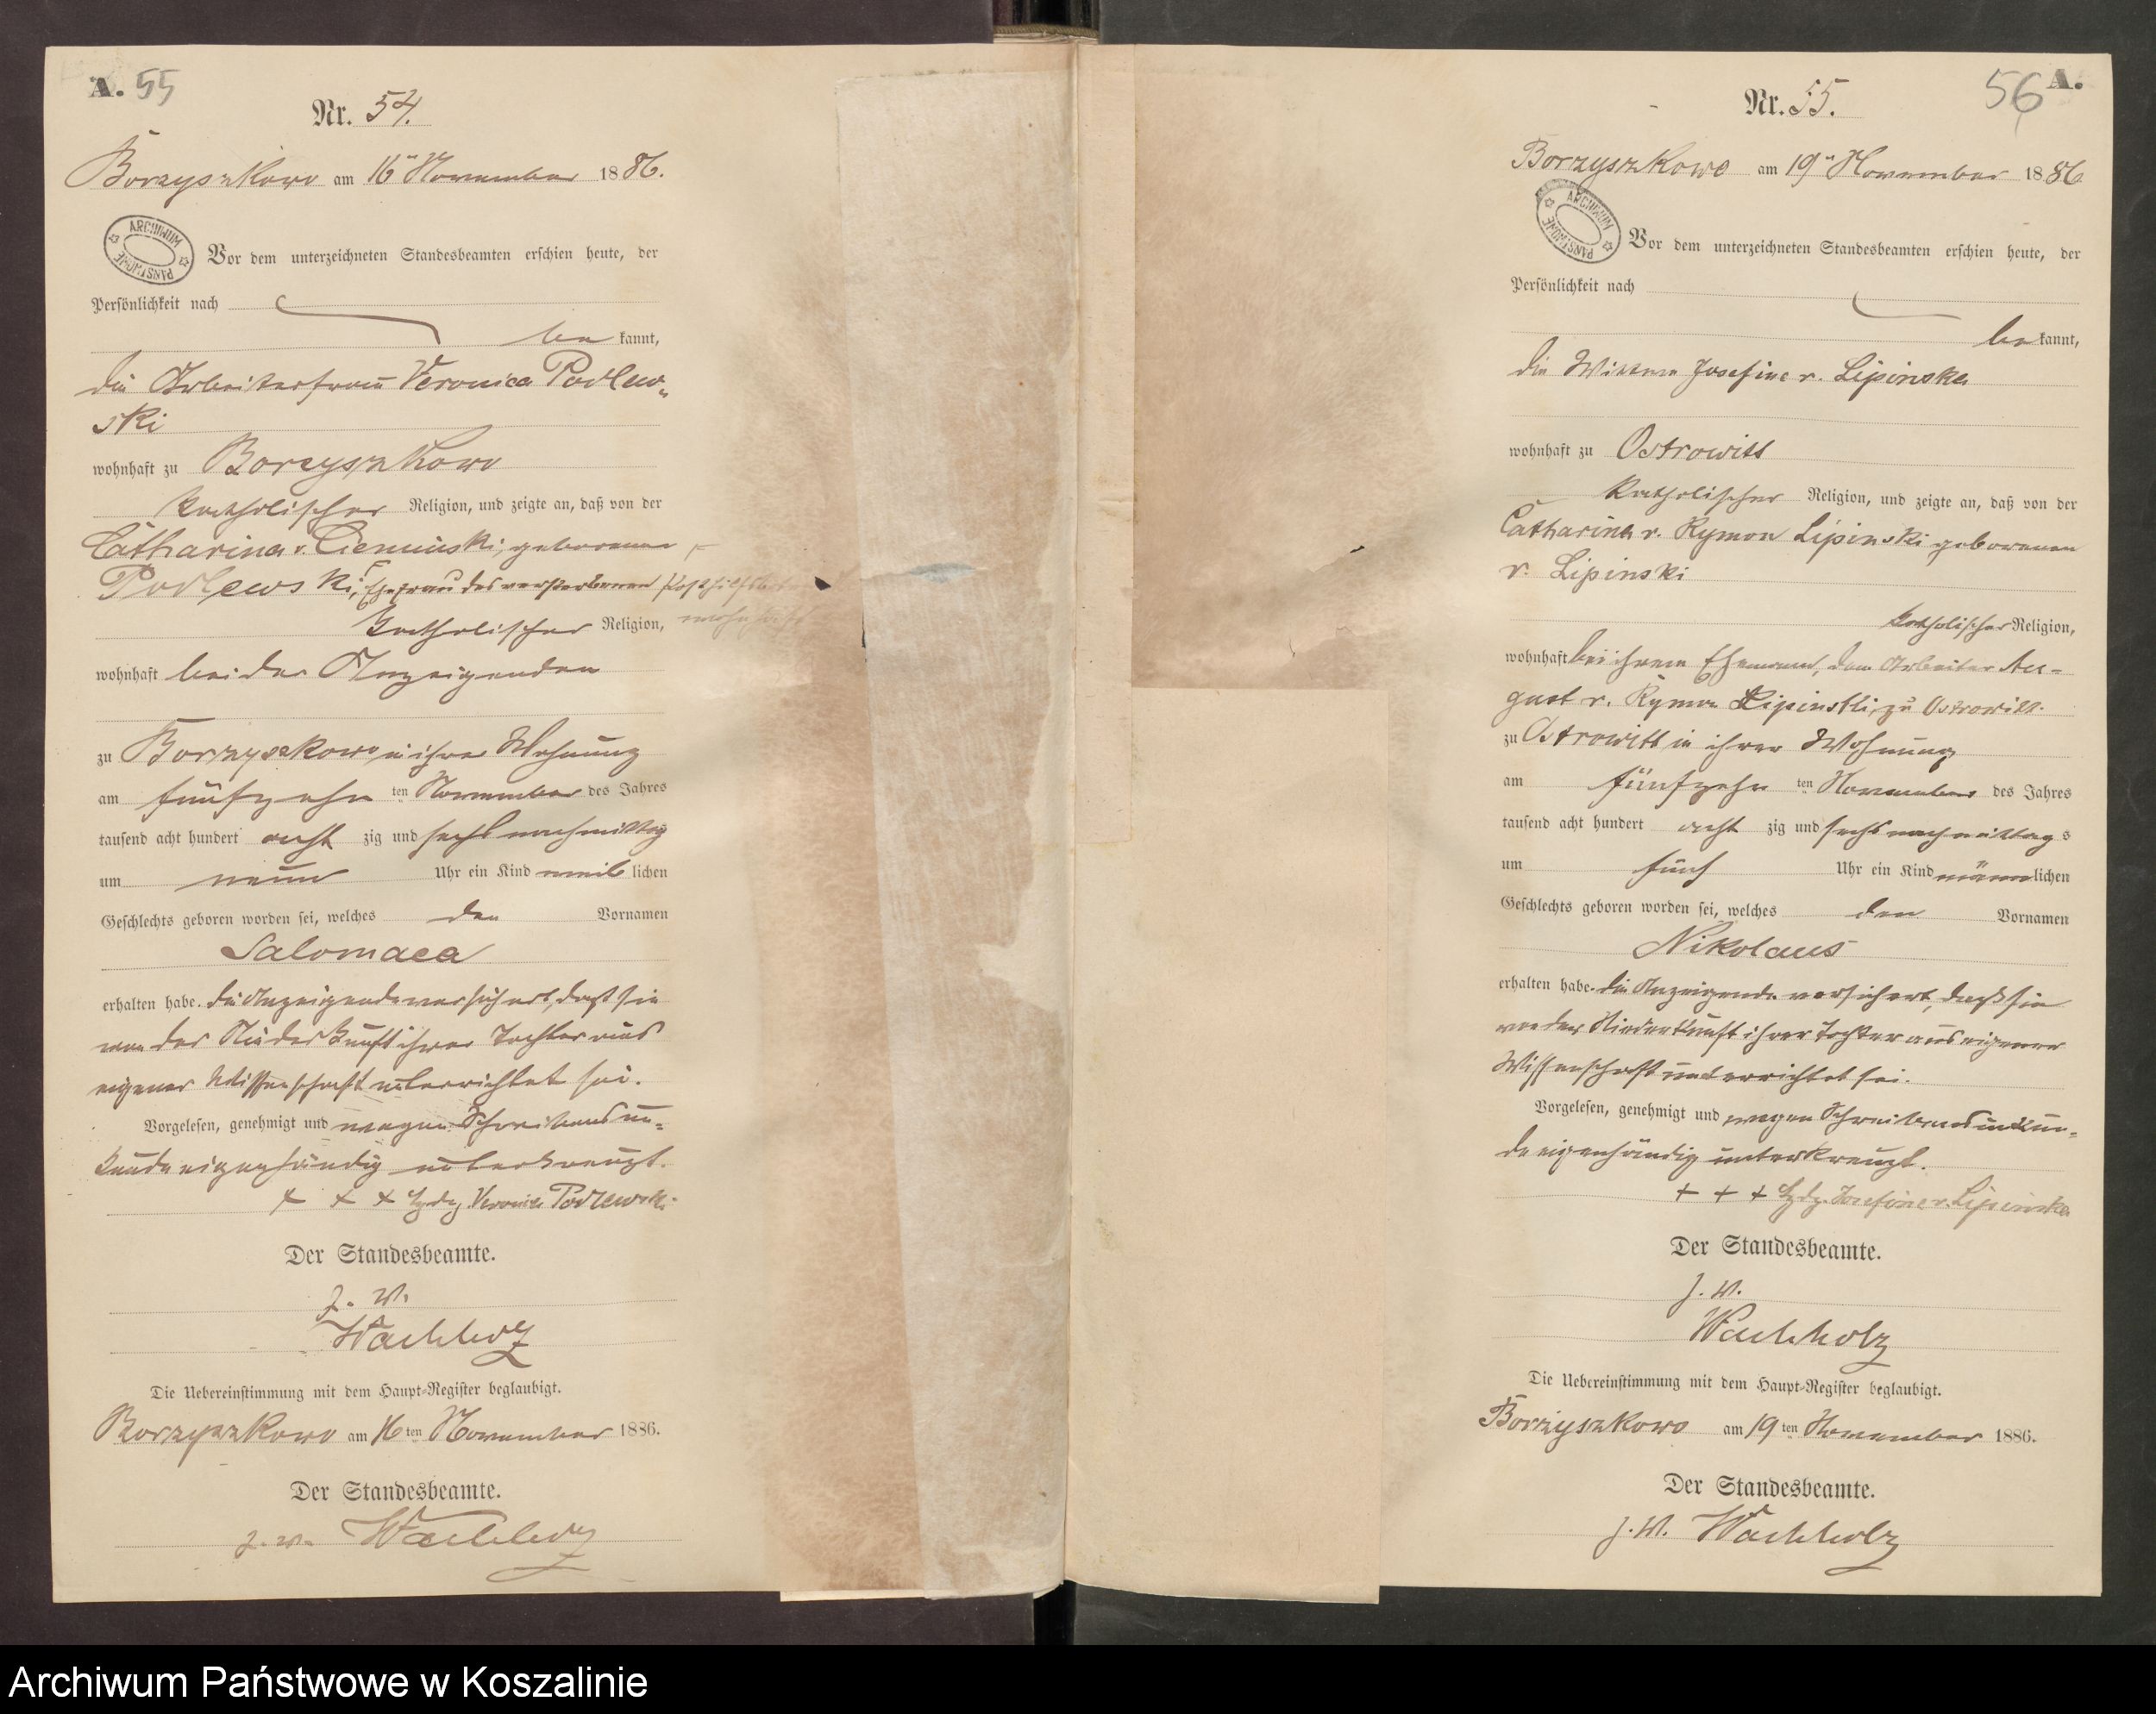 A. 55
Nr. 54.
Borzyszkowo am 16ten November 1886.
ARCHIWUM PAŃSTWOWE
Vor dem unterzeichneten Standesbeamten erschien heute, der
Persönlichkeit nach
be kannt,
die Arbeiterfrau Veronica Podlew-
ski
wohnhaft zu Borzyszkowo
katholischer Religion, und zeigte an, daß von der
Catharina v. Cieminski, geborenen
Podlewski, Ehefrau des verstorbenen
katholischer Religion,
wohnhaft bei der Anzeigenden
zu Borzyszkowo, in ihrer Wohnung
am fünfzehn ten November des Jahres
tausend acht hundert acht zig und sechs nachmittag
um neun Uhr ein Kind weib lichen
Geschlechts geboren worden sei, welches den Vornamen
Salomaea
erhalten habe. Die Anzeigende versichert, daß sie
von der Niederkunft ihrer Tochter aus
eigener Wissenschaft unterrichtet sei.
Vorgelesen, genehmigt und wegen Schreibensun-
kunde eigenhändig unterkreuzt.
+ + + Hzdg. Veronica Podlewski
Der Standesbeamte.
J. V.
Wachholz
Die Uebereinstimmung mit dem Haupt-Register beglaubigt.
Borzyszkowo am 16 ten November 1886.
Der Standesbeamte.
J. V. Wachholz
56 A.
Nr. 55.
Borzyszkowo am 19ten November 1886
ARCHIWUM PAŃSTWOWE
Vor dem unterzeichneten Standesbeamten erschien heute, der
Persönlichkeit nach
be kannt,
die Wittwe Josefine v. Lipinska
wohnhaft zu Ostrowitt
katholischer Religion, und zeigte an, daß von der
Catharina v. Rymon Lipinski geborenen
v. Lipinski
katholischer Religion,
wohnhaft bei ihrem Ehemann, dem Arbeiter Au-
gust v. Rymon Lipinski, zu Ostrowitt.
zu Ostrowitt in ihrer Wohnung
am fünfzehn ten November des Jahres
tausend acht hundert acht zig und sechs nachmittags
um fünf Uhr ein Kind männ lichen
Geschlechts geboren worden sei, welches den Vornamen
Nikolaus
erhalten habe. Die Anzeigende versichert, daß sie
von der Niederkunft ihrer Tochter aus eigener
Wissenschaft unterrichtet sei.
Vorgelesen, genehmigt und wegen Schreibensunkun-
de eigenhändig unterkreuzt.
+ + + Hzdg. Josefine v. Lipinska
Der Standesbeamte.
J. V.
Wachholz
Die Uebereinstimmung mit dem Haupt-Register beglaubigt.
Borzyszkowo am 19 ten November 1886.
Der Standesbeamte.
J. V. Wachholz
Archiwum Państwowe w Koszalinie